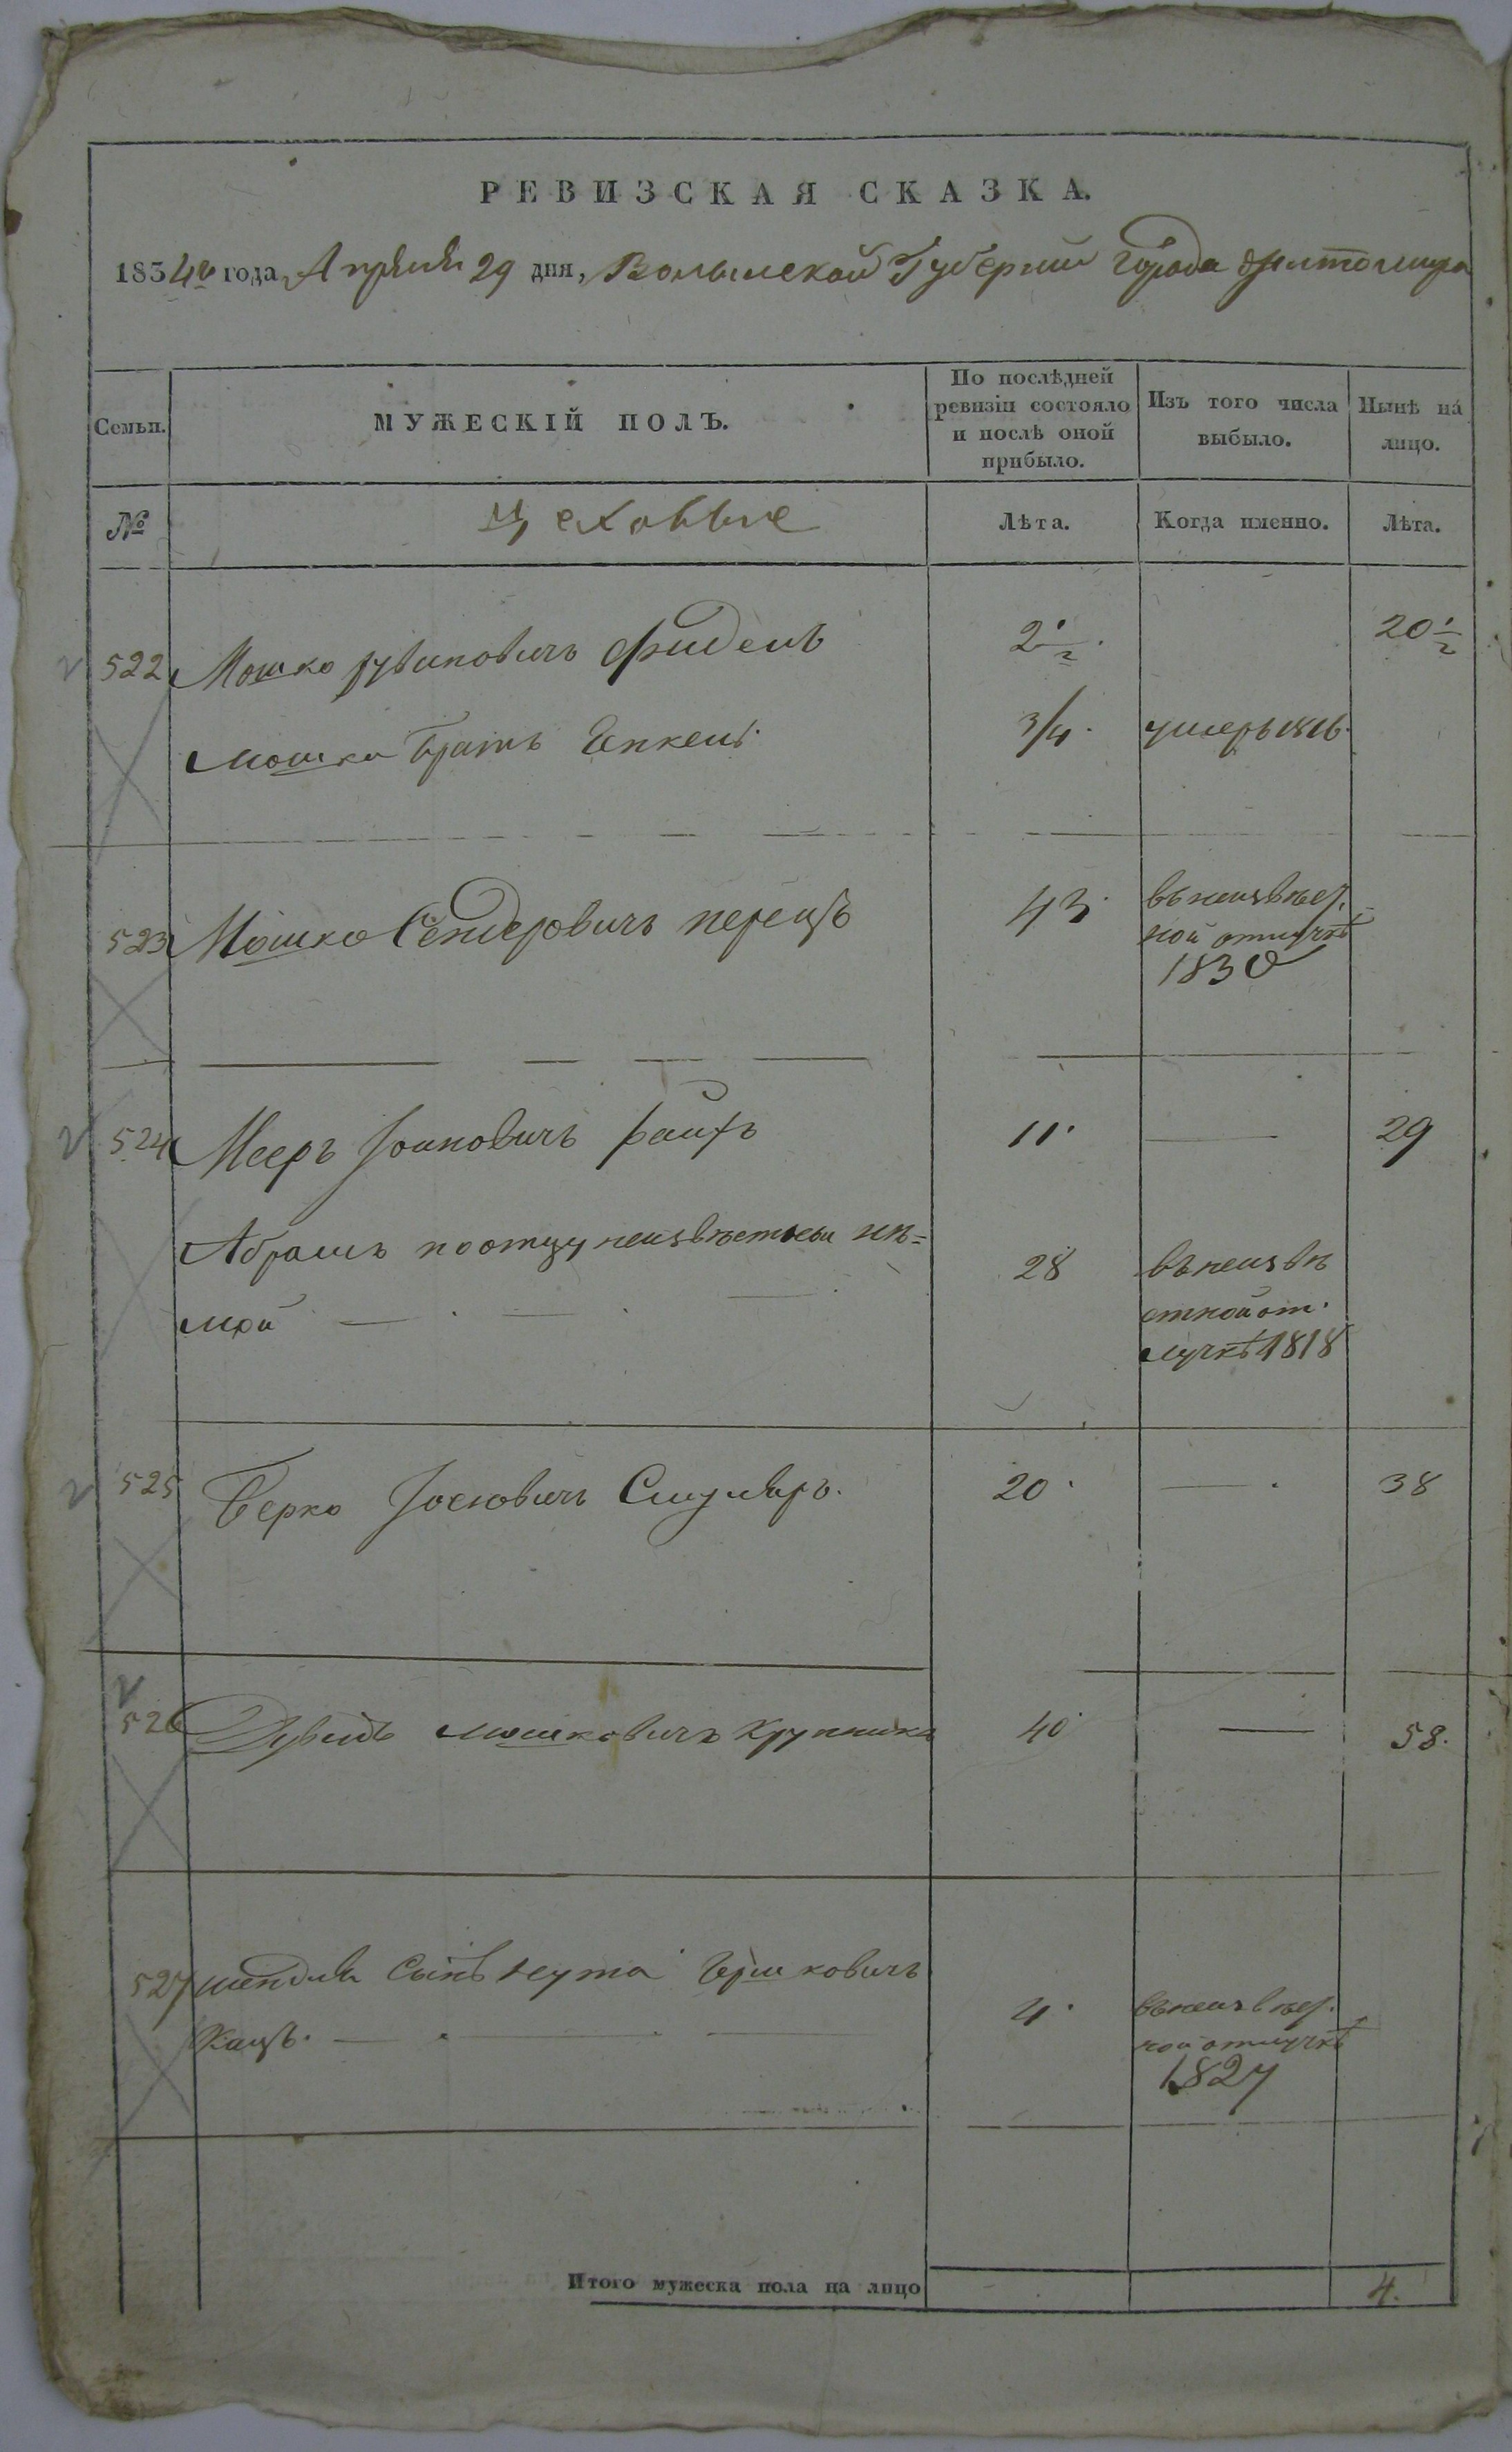 РЕВИЗСКАЯ СКАЗКА.
1834го года Апреля 29 дня, Волынской Губернии города Житомира
Семьи.
МУЖЕСКІЙ ПОЛЪ.
По послѣдней
ревизіи состояло
и послѣ оной
прибыло.
Изъ того числа
выбыло.
Нынѣ на
лицо.
№
Цеховые
Лѣта.
Когда именно.
Лѣта.
522 Мошко Рувиновичъ Фидель 2 1/2 20 1/2
Мошка братъ Енкель 3/4 умеръ 1816
523 Мошко Сендеровичъ перецъ 43 въ неизвѣст-
ной отлучкѣ
1830
524 Мееръ 11 — 29
Абрамъ по отцу неизвѣстенъ нѣ=
мой 28 въ неизвѣ
стной от
лучкѣ 1818
525 Берко Іосьовичъ Смуляръ 20 — 38
526 Дувидъ Мошковичъ Крупникъ 40 — 58.
527 Менделя сынъ Нута Гершковичъ
Кацъ. 4 въ неизвѣст
ной отлучкѣ
1827
Итого мужеска пола на лицо 4.